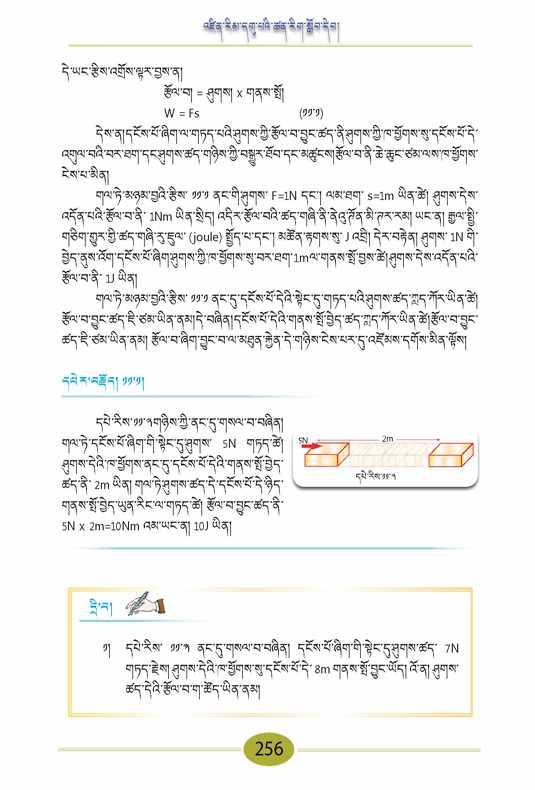 འཛིན་རིམ་དགུ་པའི་ཚན་རིག་སློབ་དེབ།
དེ་ཡང་རྩིས་འགྲོས་ལྟར་བྱས་ན།
རྩོལ་བ། = ཤུགས། x གནས་སྤོ།
W = Fs (༡༡་༡)
དེས་ན།དངོས་པོ་ཞིག་ལ་གཏད་པའི་ཤུགས་ཀྱི་རྩོལ་བ་བྱུང་ཚད་ནི་ཤུགས་ཀྱི་ཁ་ཕྱོགས་སུ་དངོས་པོ་དེ་
འགུལ་བའི་བར་ཐག་དང་ཤུགས་ཚད་གཉིས་ཀྱི་བསྒྱུར་ཐོབ་དང་མཚུངས།རྩོལ་བ་ནི་ཆེ་ཆུང་ཙམ་ལས་ཁ་ཕྱོགས་
ངེས་པ་མིན།
གལ་ཏེ་མཉམ་བྱའི་རྩིས་ ༡༡་༡ ནང་གི་ཤུགས་ F=1N དང་། ལམ་ཐག་ s=1m ཡིན་ཚེ། ཤུགས་དེས་
འདོན་པའི་རྩོལ་བ་ནི་ 1Nm ཡིན་སྲིད། འདིར་རྩོལ་བའི་ཚད་གཞི་ནི་ནེའུ་ཊོན་མི་ཊར་རམ། ཡང་ན། རྒྱལ་སྤྱི་
གཅིག་གྱུར་གྱི་ཚད་གཞི་རུ་ཇུལ་ (joule) སྤྱོད་པ་དང་། མཚོན་རྟགས་སུ་ J འབྲི། དེར་བརྟེན། ཤུགས་ 1N གི་
བྱེད་ནུས་འོག་དངོས་པོ་ཞིག་ཤུགས་ཀྱི་ཁ་ཕྱོགས་སུ་བར་ཐག་1mལ་གནས་སྤོ་བྱས་ཚེ།ཤུགས་དེས་འདོན་པའི་
རྩོལ་བ་ནི་ 1J ཡིན།
གལ་ཏེ་མཉམ་བྱའི་རྩིས་ ༡༡་༡ ནང་དུ་དངོས་པོ་དེའི་སྟེང་དུ་གཏད་པའི་ཤུགས་ཚད་ཀླད་ཀོར་ཡིན་ཚེ།
རྩོལ་བ་བྱུང་ཚད་ཇི་ཙམ་ཡིན་ནམ།དེ་བཞིན།དངོས་པོ་དེའི་གནས་སྤོ་བྱེད་ཚད་ཀླད་ཀོར་ཡིན་ཚེ།རྩོལ་བ་བྱུང་
ཚད་ཇི་ཙམ་ཡིན་ནམ། རྩོལ་བ་ཞིག་བྱུང་བ་ལ་མཐུན་རྐྱེན་དེ་གཉིས་ངེས་པར་དུ་འཛོམས་དགོས་མིན་ལྟོས།
དཔེར་བརྗོད། ༡༡་༡།
དཔེ་རིས་༡༡་༣གཉིས་ཀྱི་ནང་དུ་གསལ་བ་བཞིན།
གལ་ཏེ་དངོས་པོ་ཞིག་གི་སྟེང་དུ་ཤུགས་ 5N གཏད་ཚེ།
ཤུགས་དེའི་ཁ་ཕྱོགས་ནང་དུ་དངོས་པོ་དེའི་གནས་སྤོ་བྱེད་
ཚད་ནི་ 2m ཡིན། གལ་ཏེ་ཤུགས་ཚད་དེ་དངོས་པོ་དེ་ཉིད་
གནས་སྤོ་བྱེད་ཡུན་རིང་ལ་གཏད་ཚེ། རྩོལ་བ་བྱུང་ཚད་ནི་
5N x 2m=10Nm འམ་ཡང་ན། 10J ཡིན།
5N
2m
དཔེ་རིས་༡༡་༣
དྲི་བ།
༡། དཔེ་རིས་ ༡༡་༣ ནང་དུ་གསལ་བ་བཞིན། དངོས་པོ་ཞིག་གི་སྟེང་དུ་ཤུགས་ཚད་ 7N
གཏད་རྗེས། ཤུགས་དེའི་ཁ་ཕྱོགས་སུ་དངོས་པོ་དེ་ 8m གནས་སྤོ་བྱུང་ཡོད། འོ་ན། ཤུགས་
ཚད་དེའི་རྩོལ་བ་ག་ཚོད་ཡིན་ནམ།
256